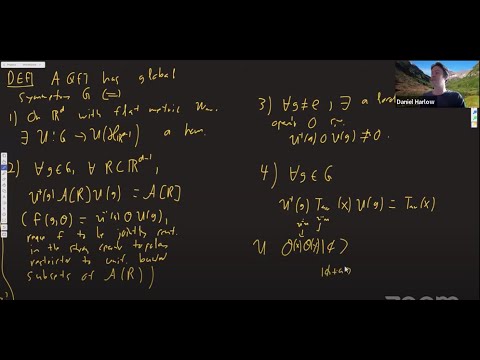 DEF] A QFT has global
symmetry G (=)
1) On ℝᵈ with flat metric
∃ U: G → U(ℋ_{ℝᵈ⁻¹}) a hom.
2) ∀g∈G, ∀ R⊂ℝᵈ⁻¹,
U†(g) A[R] U(g) = A[R]
(f(g,O) = U†(g) O U(g),
require f to be jointly cont.
in the strong operator topology
restricted to unif. bounded
subsets of A(R))
3) ∀g≠e, ∃ a local
O s.t.
U†(g) O U(g) ≠ O.
4) ∀g∈G
U†(g) Tμν(x) U(g) = Tμν(x)
U O(x) O(y) |φ>
Daniel Harlow
zoom